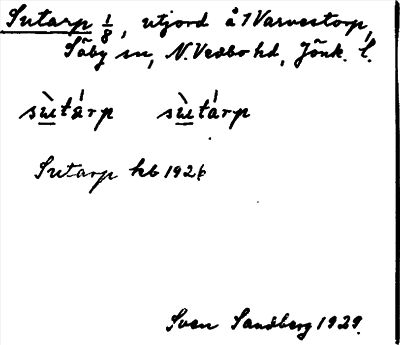 Sutarp 1/8, utjord å 1 Varvestorp,
Säby sn, N. Vedbo hd, Jönk. l.
sùtárp sùtárp
Sutarp kb 1926
Sven Sandberg 1929.